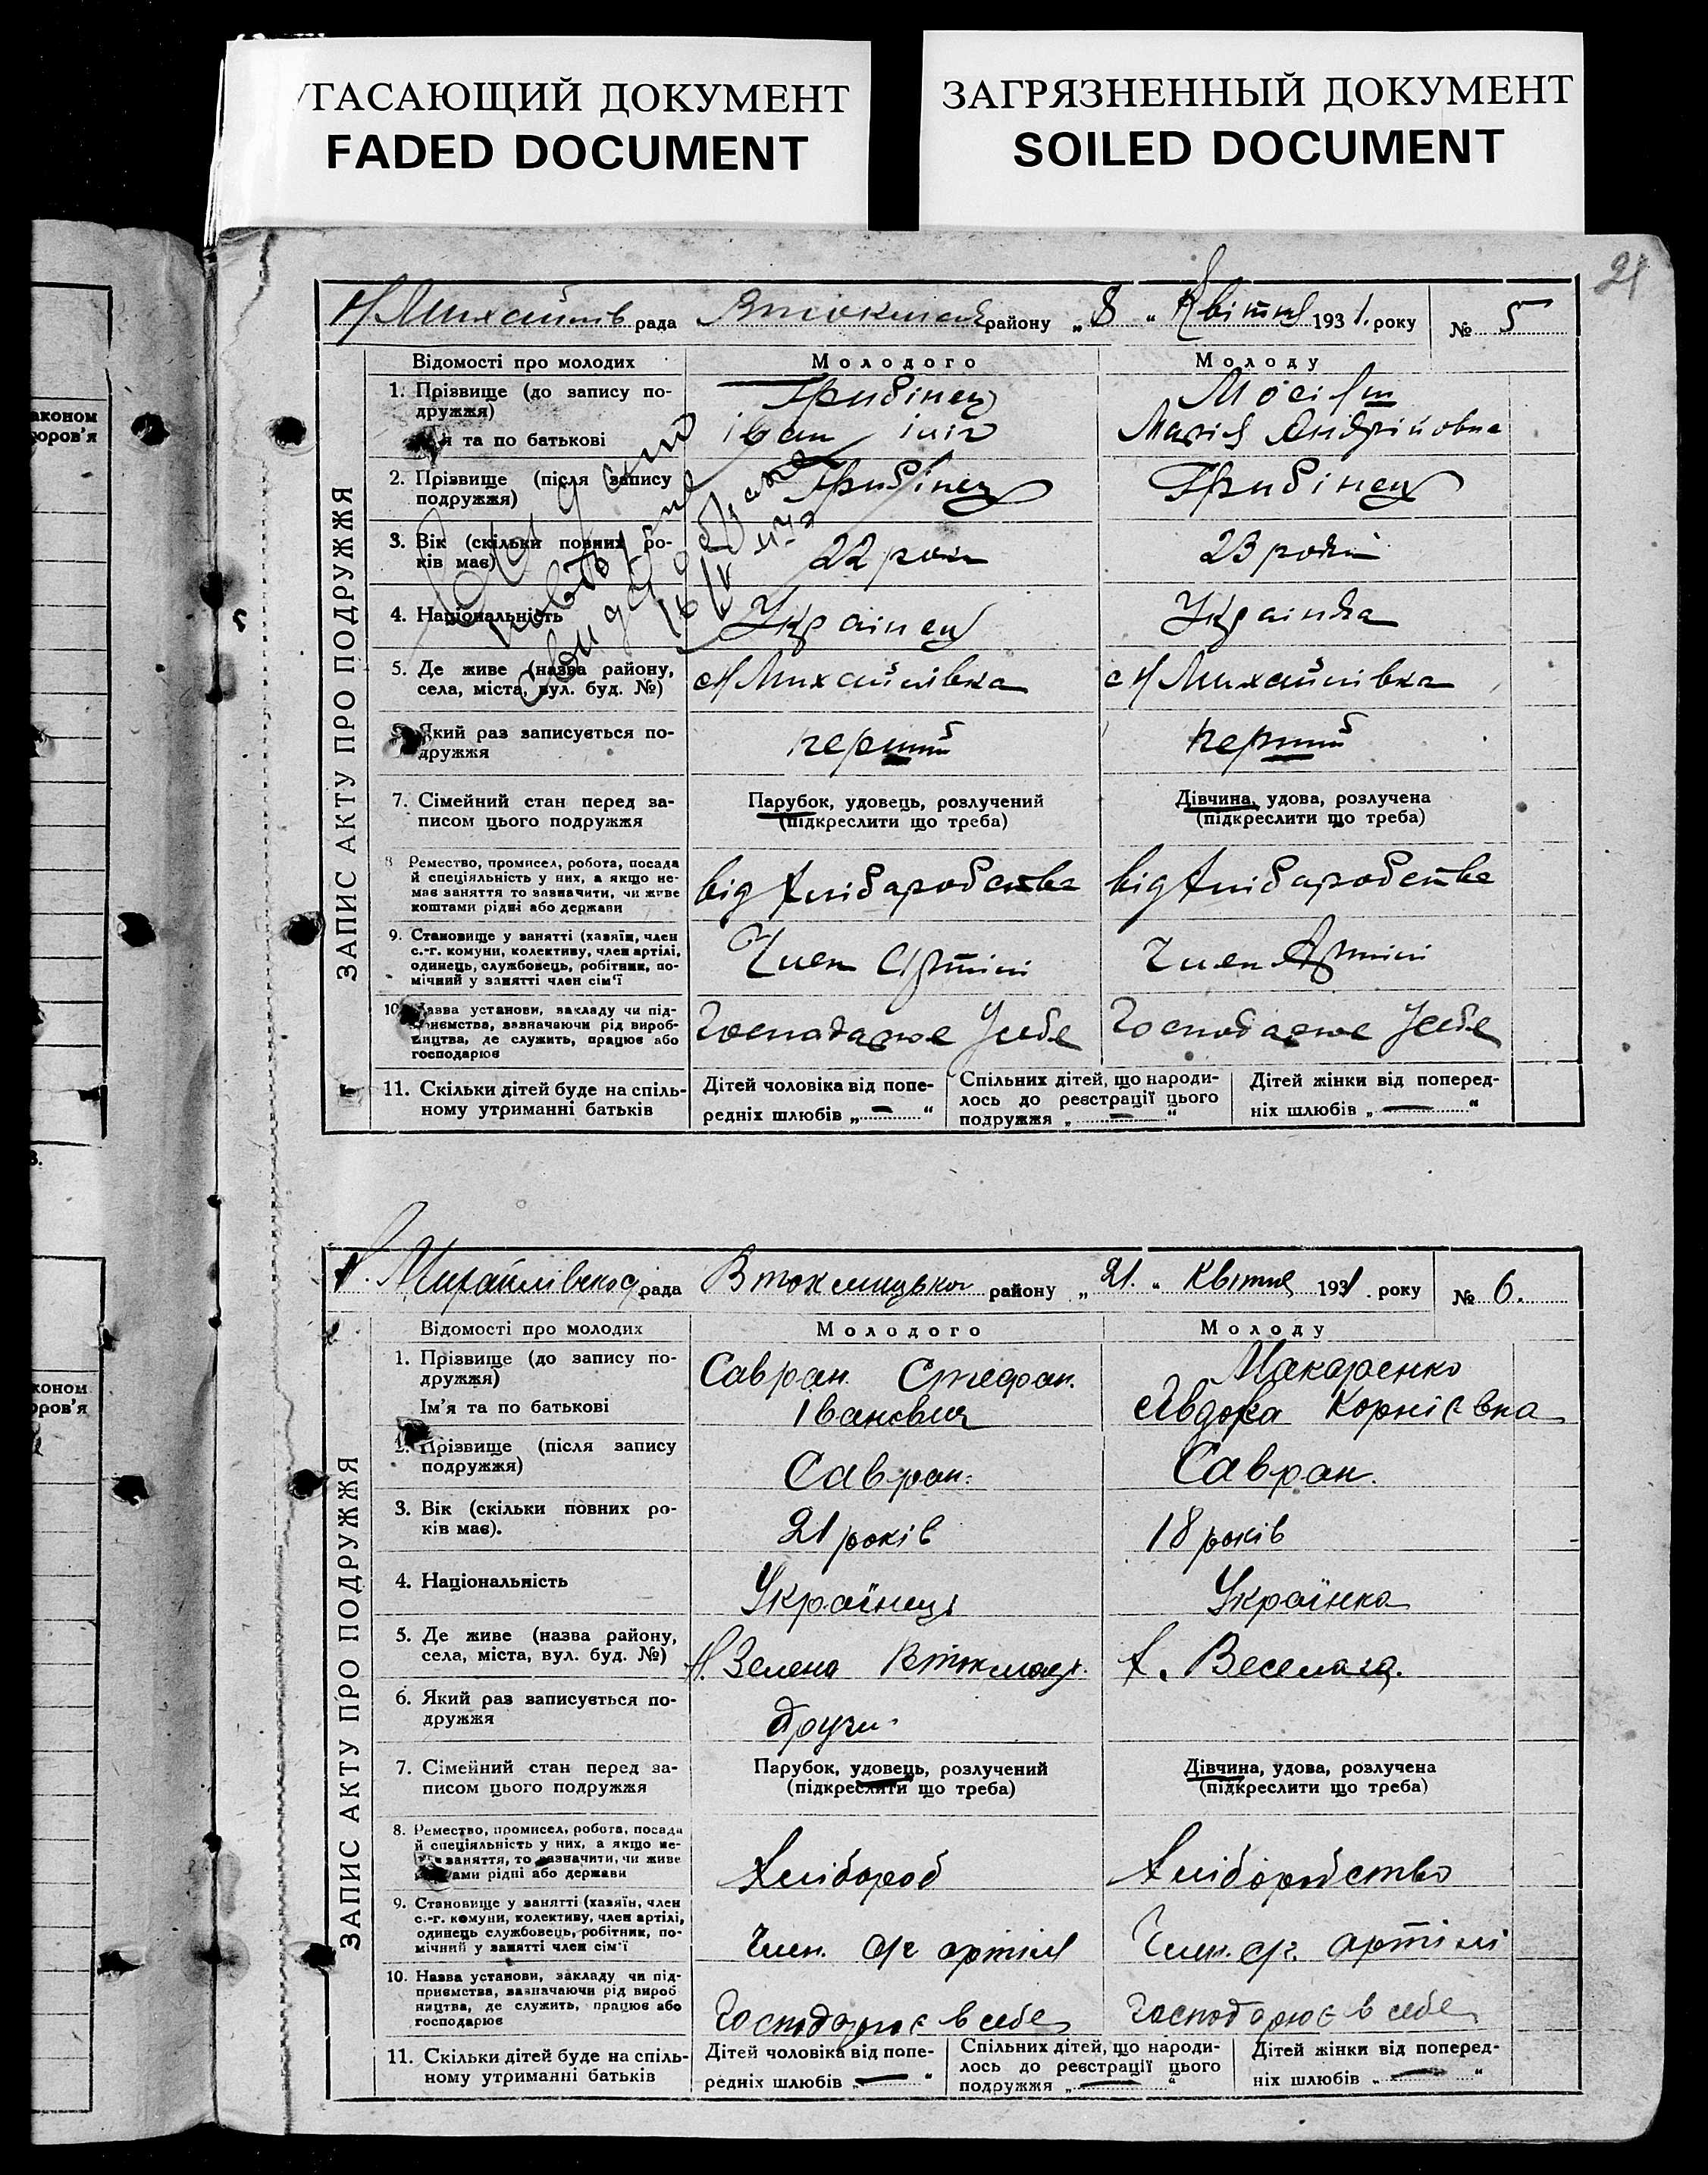 УГАСАЮЩИЙ ДОКУМЕНТ
FADED DOCUMENT
ЗАГРЯЗНЕННЫЙ ДОКУМЕНТ
SOILED DOCUMENT
21
Н Михайлів рада Втокмац району „ 8 “ Квітня 1931. року № 5
Відомості про молодих Молодого Молоду
ЗАПИС АКТУ ПРО ПОДРУЖЖЯ
1. Прізвище (до запису по-
дружжя)
та по батькові
Грибінец
іван
Марія Андрійовна
2. Прізвище (після запису
подружжя)
Грибінец
Грибінец
3. Вік (скільки повних ро-
ків має)
22 роки
23 роки
4. Національність
Українец
Українка
5. Де живе (назва району,
села, міста, вул. буд. №)
с Н Михайлівка
с Н Михайлівка
Який раз записується по-
дружжя
перший
перший
7. Сімейний стан перед за-
писом цього подружжя
Парубок, удовець, розлучений
(підкреслити що треба)
Дівчина, удова, розлучена
(підкреслити що треба)
8 Ремество, промисел, робота, посада
й спеціяльність у них, а якщо не-
має заняття то зазначити, чи живе
коштами рідні або держави
від Хлібаробства
від Хлібаробства
9. Становище у занятті (хазяїн, член
с.-г. комуни, колективу, член артілі,
одинець, службовець, робітник, по-
мічний у занятті член сім'ї
Член Артіли
Член Артіли
10 Назва установи, закладу чи під-
приємства, зазначаючи рід вироб-
ництва, де служить, працює або
господарює
Господарює Усебе
Господарює Усебе
11. Скільки дітей буде на спіль-
ному утриманні батьків
Дітей чоловіка від попе-
редніх шлюбів „ — “
Спільних дітей, що народи-
лось до реєстрації цього
подружжя „ — “
Дітей жінки від поперед-
ніх шлюбів „ — “
Н. Михайлівської рада Втокмацького району „ 21. “ Квітня 1931. року № 6.
Відомості про молодих Молодого Молоду
ЗАПИС АКТУ ПРО ПОДРУЖЖЯ
1. Прізвище (до запису по-
дружжя)
Ім'я та по батькові
Савран Стефан.
Іванович
Макаренко
Явдоха Корнієвна
2. Прізвище (після запису
подружжя)
Савран.
Савран.
3. Вік (скільки повних ро-
ків має).
21 років
18 років
4. Національність
Українець
Українка
5. Де живе (назва району,
села, міста, вул. буд. №)
Н. Зелена Втокмац.
Х. Весела
6. Який раз записується по-
дружжя
други
7. Сімейний стан перед за-
писом цього подружжя
Парубок, удовець, розлучений
(підкреслити що треба)
Дівчина, удова, розлучена
(підкреслити що треба)
8. Ремество, промисел, робота, посада
й спеціяльність у них, а якщо не-
заняття, то зазначити, чи живе
рідні або держави
Хлібороб
Хліборобство
9. Становище у занятті (хазяїн, член
с.-г. комуни, колективу, член артілі,
одинець службовець, робітник, по-
мічний у занятті член сім'ї
Член. с/г артілі
Член. с/г. артілі
10. Назва установи, закладу чи під-
приємства, зазначаючи рід вироб
ництва, де служить, працює або
господарює
Господарює в себе
Господарює в себе
11. Скільки дітей буде на спіль-
ному утриманні батьків
Дітей чоловіка від попе-
редніх шлюбів „ — “
Спільних дітей, що народи-
лось до реєстрації цього
подружжя „ — “
Дітей жінки від поперед-
ніх шлюбів „ — “